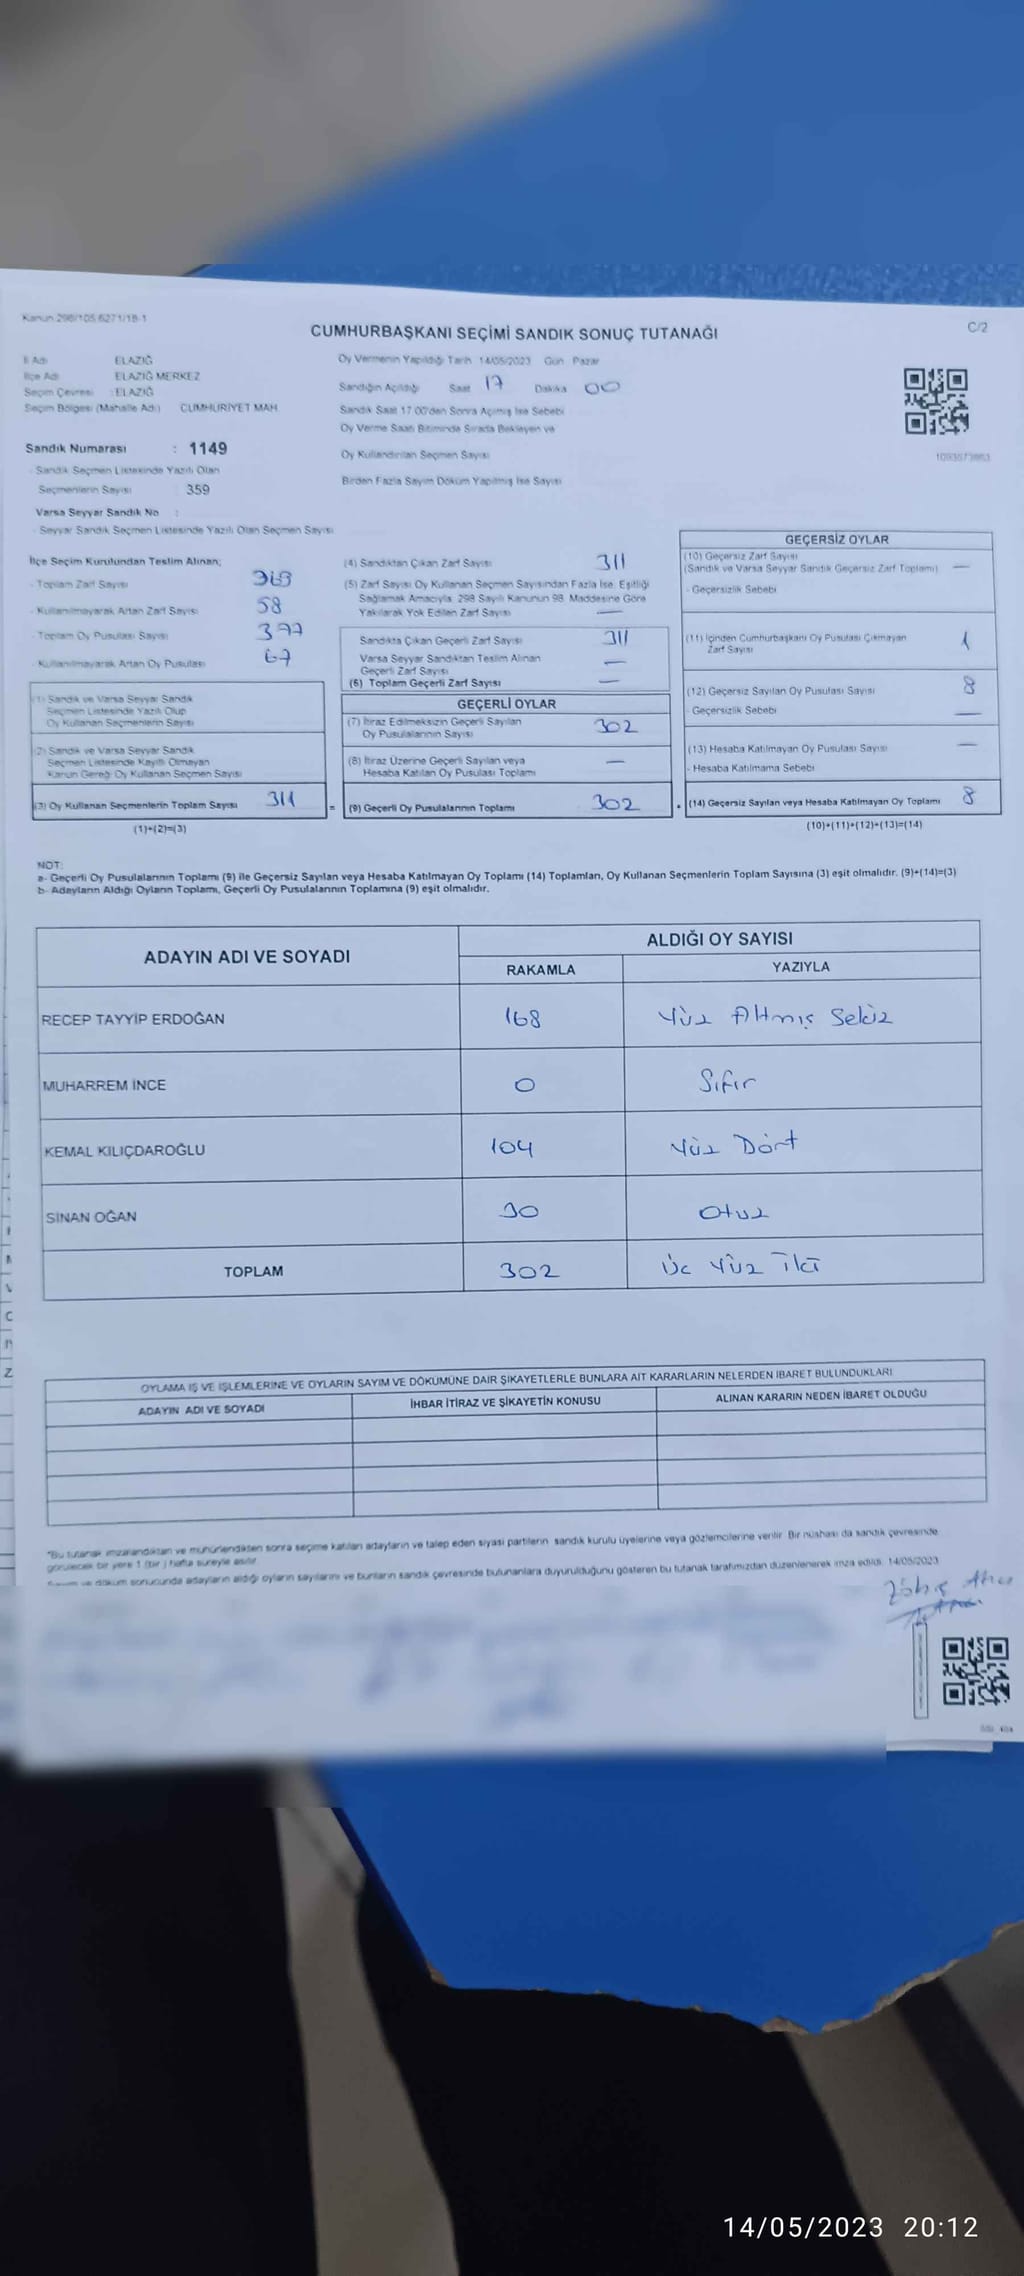 Kanun 298/105,6271/18-1
C/2
CUMHURBAŞKANI SEÇİMİ SANDIK SONUÇ TUTANAĞI
İl Adı ELAZIĞ
İlçe Adı ELAZIĞ MERKEZ
Seçim Çevresi : ELAZIĞ
Seçim Bölgesi (Mahalle Adı) CUMHURİYET MAH
Sandık Numarası : 1149
- Sandık Seçmen Listesinde Yazılı Olan
Seçmenlerin Sayısı 359
Varsa Seyyar Sandık No :
- Seyyar Sandık Seçmen Listesinde Yazılı Olan Seçmen Sayısı
Oy Vermenin Yapıldığı Tarih 14/05/2023 Gün Pazar
Sandığın Açıldığı Saat 17 Dakika 00
Sandık Saat 17 00'den Sonra Açılmış İse Sebebi
Oy Verme Saati Bitiminde Sırada Bekleyen ve
Oy Kullandırılan Seçmen Sayısı
Birden Fazla Sayım Döküm Yapılmış İse Sayısı
İlçe Seçim Kurulundan Teslim Alınan;
- Toplam Zarf Sayısı 369
- Kullanılmayarak Artan Zarf Sayısı 58
- Toplam Oy Pusulası Sayısı 377
- Kullanılmayarak Artan Oy Pusulası 67
(1) Sandık ve Varsa Seyyar Sandık
Seçmen Listesinde Yazılı Olup
Oy Kullanan Seçmenlerin Sayısı
(2) Sandık ve Varsa Seyyar Sandık
Seçmen Listesinde Kayıtlı Olmayan
Kanun Gereği Oy Kullanan Seçmen Sayısı
(3) Oy Kullanan Seçmenlerin Toplam Sayısı 311
(1)+(2)=(3)
(4) Sandıktan Çıkan Zarf Sayısı 311
(5) Zarf Sayısı Oy Kullanan Seçmen Sayısından Fazla İse, Eşitliği
Sağlamak Amacıyla, 298 Sayılı Kanunun 98. Maddesine Göre
Yakılarak Yok Edilen Zarf Sayısı —
Sandıkta Çıkan Geçerli Zarf Sayısı 311
Varsa Seyyar Sandıktan Teslim Alınan
Geçerli Zarf Sayısı —
(6) Toplam Geçerli Zarf Sayısı —
GEÇERLİ OYLAR
(7) İtiraz Edilmeksizin Geçerli Sayılan
Oy Pusulalarının Sayısı 302
(8) İtiraz Üzerine Geçerli Sayılan veya
Hesaba Katılan Oy Pusulası Toplamı —
= (9) Geçerli Oy Pusulalarının Toplamı 302
GEÇERSİZ OYLAR
(10) Geçersiz Zarf Sayısı
(Sandık ve Varsa Seyyar Sandık Geçersiz Zarf Toplamı) —
- Geçersizlik Sebebi
(11) İçinden Cumhurbaşkanı Oy Pusulası Çıkmayan
Zarf Sayısı 1
(12) Geçersiz Sayılan Oy Pusulası Sayısı 8
- Geçersizlik Sebebi —
(13) Hesaba Katılmayan Oy Pusulası Sayısı —
- Hesaba Katılmama Sebebi
+ (14) Geçersiz Sayılan veya Hesaba Katılmayan Oy Toplamı 8
(10)+(11)+(12)+(13)=(14)
NOT:
a- Geçerli Oy Pusulalarının Toplamı (9) ile Geçersiz Sayılan veya Hesaba Katılmayan Oy Toplamı (14) Toplamları, Oy Kullanan Seçmenlerin Toplam Sayısına (3) eşit olmalıdır. (9)+(14)=(3)
b- Adayların Aldığı Oyların Toplamı, Geçerli Oy Pusulalarının Toplamına (9) eşit olmalıdır.
ADAYIN ADI VE SOYADI ALDIĞI OY SAYISI
RAKAMLA YAZIYLA
RECEP TAYYİP ERDOĞAN 168 Yüz Altmış Sekiz
MUHARREM İNCE 0 Sıfır
KEMAL KILIÇDAROĞLU 104 Yüz Dört
SİNAN OĞAN 30 Otuz
TOPLAM 302 Üç Yüz İki
OYLAMA İŞ VE İŞLEMLERİNE VE OYLARIN SAYIM VE DÖKÜMÜNE DAİR ŞİKAYETLERLE BUNLARA AİT KARARLARIN NELERDEN İBARET BULUNDUKLARI
ADAYIN ADI VE SOYADI İHBAR İTİRAZ VE ŞİKAYETİN KONUSU ALINAN KARARIN NEDEN İBARET OLDUĞU
*Bu tutanak imzalandıktan ve mühürlendikten sonra seçime katılan adayların ve talep eden siyasi partilerin sandık kurulu üyelerine veya gözlemcilerine verilir. Bir nüshası da sandık çevresinde
görülecek bir yere 1 (bir) hafta süreyle asılır.
Sayım ve döküm sonucunda adayların aldığı oyların sayılarını ve bunların sandık çevresinde bulunanlara duyurulduğunu gösteren bu tutanak tarafımızdan düzenlenerek imza edildi. 14/05/2023
14/05/2023 20:12